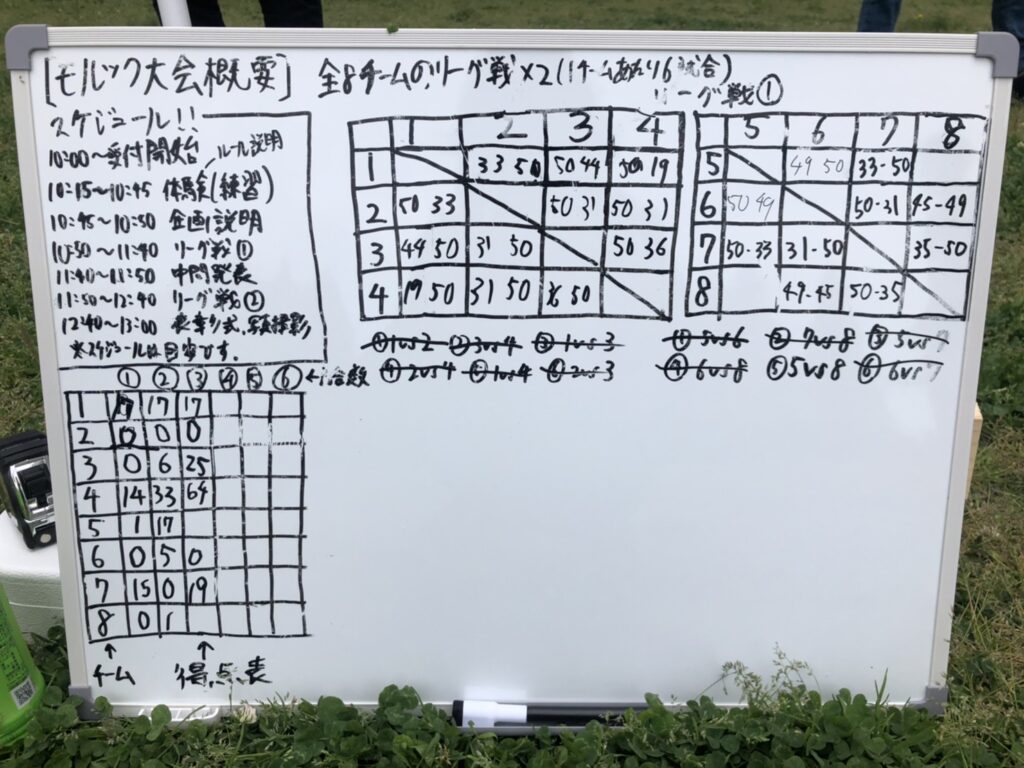 [モルック大会概要] 全8チームのリーグ戦×2(1チームあたり6試合)
リーグ戦①
スケジュール!!
10:00〜受付開始
ルール説明
10:15〜10:45 体験(練習)
10:45〜10:50 企画説明
10:50〜11:40 リーグ戦①
11:40〜11:50 中間発表
11:50〜12:40 リーグ戦②
12:40〜13:00 表彰式、写真撮影
※スケジュールは目安です.
1 2 3 4
1 33 50 50 44 50 19
2 50 33 50 31 50 31
3 44 50 31 50 50 36
4 19 50 31 50 36 50
5 6 7 8
5 49 50 33-50
6 50 49 50-31 45-49
7 50-33 31-50 35-50
8 49-45 50-35
①1vs2 ②3vs4 ③1vs3
④2vs4 ⑤1vs4 ⑥2vs3
①5vs6 ②7vs8 ③5vs7
④6vs8 ⑤5vs8 ⑥6vs7
① ② ③ ④ ⑤ ⑥ ←試合数
1 17 17 17
2 0 0 0
3 0 6 25
4 14 33 64
5 1 17
6 0 5 0
7 15 0 19
8 0 1
↑ ↑
チーム 得点表